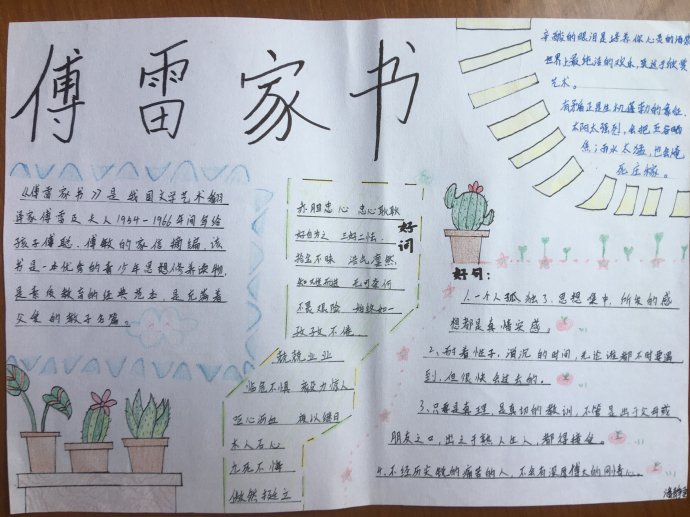 傅雷家书
辛酸的眼泪是培养你心灵的酒浆
世界上最纯洁的欢乐,莫过于欣赏
艺术。
有矛盾正是生机蓬勃的象征。
太阳太强烈,会把五谷晒
焦;雨水太猛,也会淹
死庄稼。
《傅雷家书》是我国文学艺术翻
译家傅雷及夫人1954-1966年间写给
孩子傅聪、傅敏的家信摘编,该
书是一本优秀的青少年思想修养读物,
是素质教育的经典范本,是充满着
父爱的教子名篇。
好词
赤胆忠心 忠心耿耿
好自为之
拾金不昧 浩气凛然
知难而进 无可奈何
不畏艰险 始终如一
孜孜不倦
兢兢业业
临危不惧
呕心沥血 夜以继日
木人石心
九死不悔
傲然挺立
好句:
1.一个人孤独了,思想集中,所发的感
想都是真情实感。
2、耐着性子,消沉的时间,无论谁都不时要遇
到,但很快会过去的。
3、只要是真理,是真切的教训,不管是出于父母或
朋友之口,出之于熟人生人,都得接受。
4、不经历尖锐的痛苦的人,不会有深厚博大的同情心。